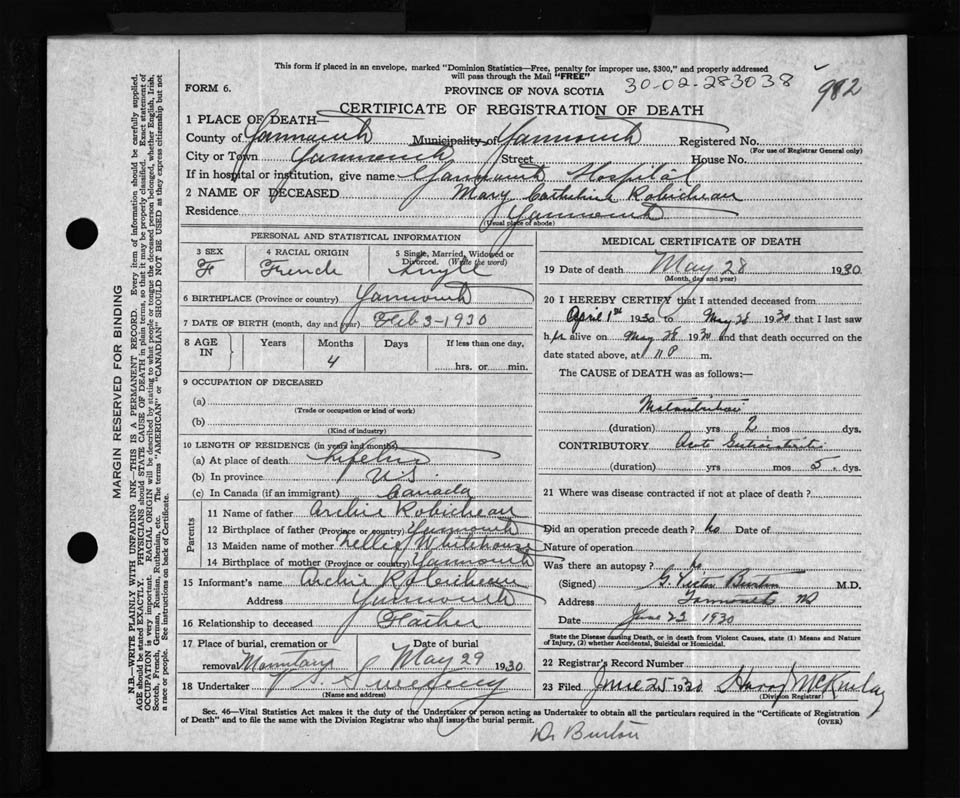 This form if placed in an envelope, marked "Dominion Statistics—Free, penalty for improper use, $300," and properly addressed
will pass through the Mail "FREE"
FORM 6.
PROVINCE OF NOVA SCOTIA
30-02-283038
982
CERTIFICATE OF REGISTRATION OF DEATH
1 PLACE OF DEATH—
County of Yarmouth Municipality of Yarmouth Registered No.
(For use of Registrar General only)
City or Town Yarmouth Street House No.
If in hospital or institution, give name Yarmouth Hospital
2 NAME OF DECEASED Mary Catherine Robicheau
Residence Yarmouth
(Usual place of abode)
PERSONAL AND STATISTICAL INFORMATION
3 SEX F
4 RACIAL ORIGIN French
5 Single, Married, Widowed or Divorced. (Write the word) Single
6 BIRTHPLACE (Province or country) Yarmouth
7 DATE OF BIRTH (month, day and year) Feb 3-1930
8 AGE IN Years Months Days If less than one day,
4 hrs. or min.
9 OCCUPATION OF DECEASED
(a)
(Trade or occupation or kind of work)
(b)
(Kind of industry)
10 LENGTH OF RESIDENCE (in years and months)
(a) At place of death Lifetime
(b) In province N.S.
(c) In Canada (if an immigrant) Canada
Parents
11 Name of father Archie Robicheau
12 Birthplace of father (Province or country) Yarmouth
13 Maiden name of mother Nellie Whitehouse
14 Birthplace of mother (Province or country) Yarmouth
15 Informant's name Archie Robicheau
Address Yarmouth
16 Relationship to deceased Father
17 Place of burial, cremation or Date of burial
removal May 29 1930
18 Undertaker Sweeney
(Name and address)
MEDICAL CERTIFICATE OF DEATH
19 Date of death May 28 1930
(Month, day and year)
20 I HEREBY CERTIFY that I attended deceased from
April 1st 1930 to May 28 1930 that I last saw
her alive on May 28 1930 and that death occurred on the
date stated above, at 11 P m.
The CAUSE of DEATH was as follows:—
Malnutrition
(duration) yrs 2 mos dys.
CONTRIBUTORY Acute
(duration) yrs mos 5 dys.
21 Where was disease contracted if not at place of death?
Did an operation precede death? No Date of
Nature of operation
Was there an autopsy? No
(Signed) G. Victor Burton M.D.
Address Yarmouth NS
Date June 23 1930
State the Disease causing Death, or in death from Violent Causes, state (1) Means and Nature
of Injury, (2) whether Accidental, Suicidal or Homicidal.
22 Registrar's Record Number
23 Filed June 25 1930 Harry McKinlay
(Division Registrar)
Sec. 46—Vital Statistics Act makes it the duty of the Undertaker or person acting as Undertaker to obtain all the particulars required in the "Certificate of Registration
of Death" and to file the same with the Division Registrar who shall issue the burial permit.
(OVER)
Dr Burton
MARGIN RESERVED FOR BINDING
N.B.—WRITE PLAINLY WITH UNFADING INK—THIS IS A PERMANENT RECORD. Every item of information should be carefully supplied.
AGE should be stated EXACTLY. PHYSICIANS should STATE CAUSE OF DEATH in plain terms, so that it may be properly classified. Exact statement of
OCCUPATION is very important. RACIAL ORIGIN will be described by stating to what people or tongue the deceased person belonged, whether English, Irish,
Scotch, French, German, Russian, Ruthenian, etc. The terms "AMERICAN" or "CANADIAN" SHOULD NOT BE USED as they express citizenship but not
a race or people. See instructions on back of Certificate.